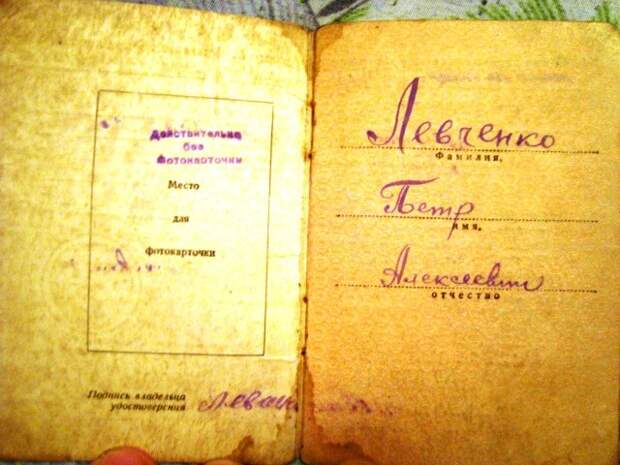 Действительно
без
фотокарточки
Место
для
фотокарточки
Подпись владельца
удостоверения
Левченко
Фамилия,
Петр
имя,
Алексеевич
отчество